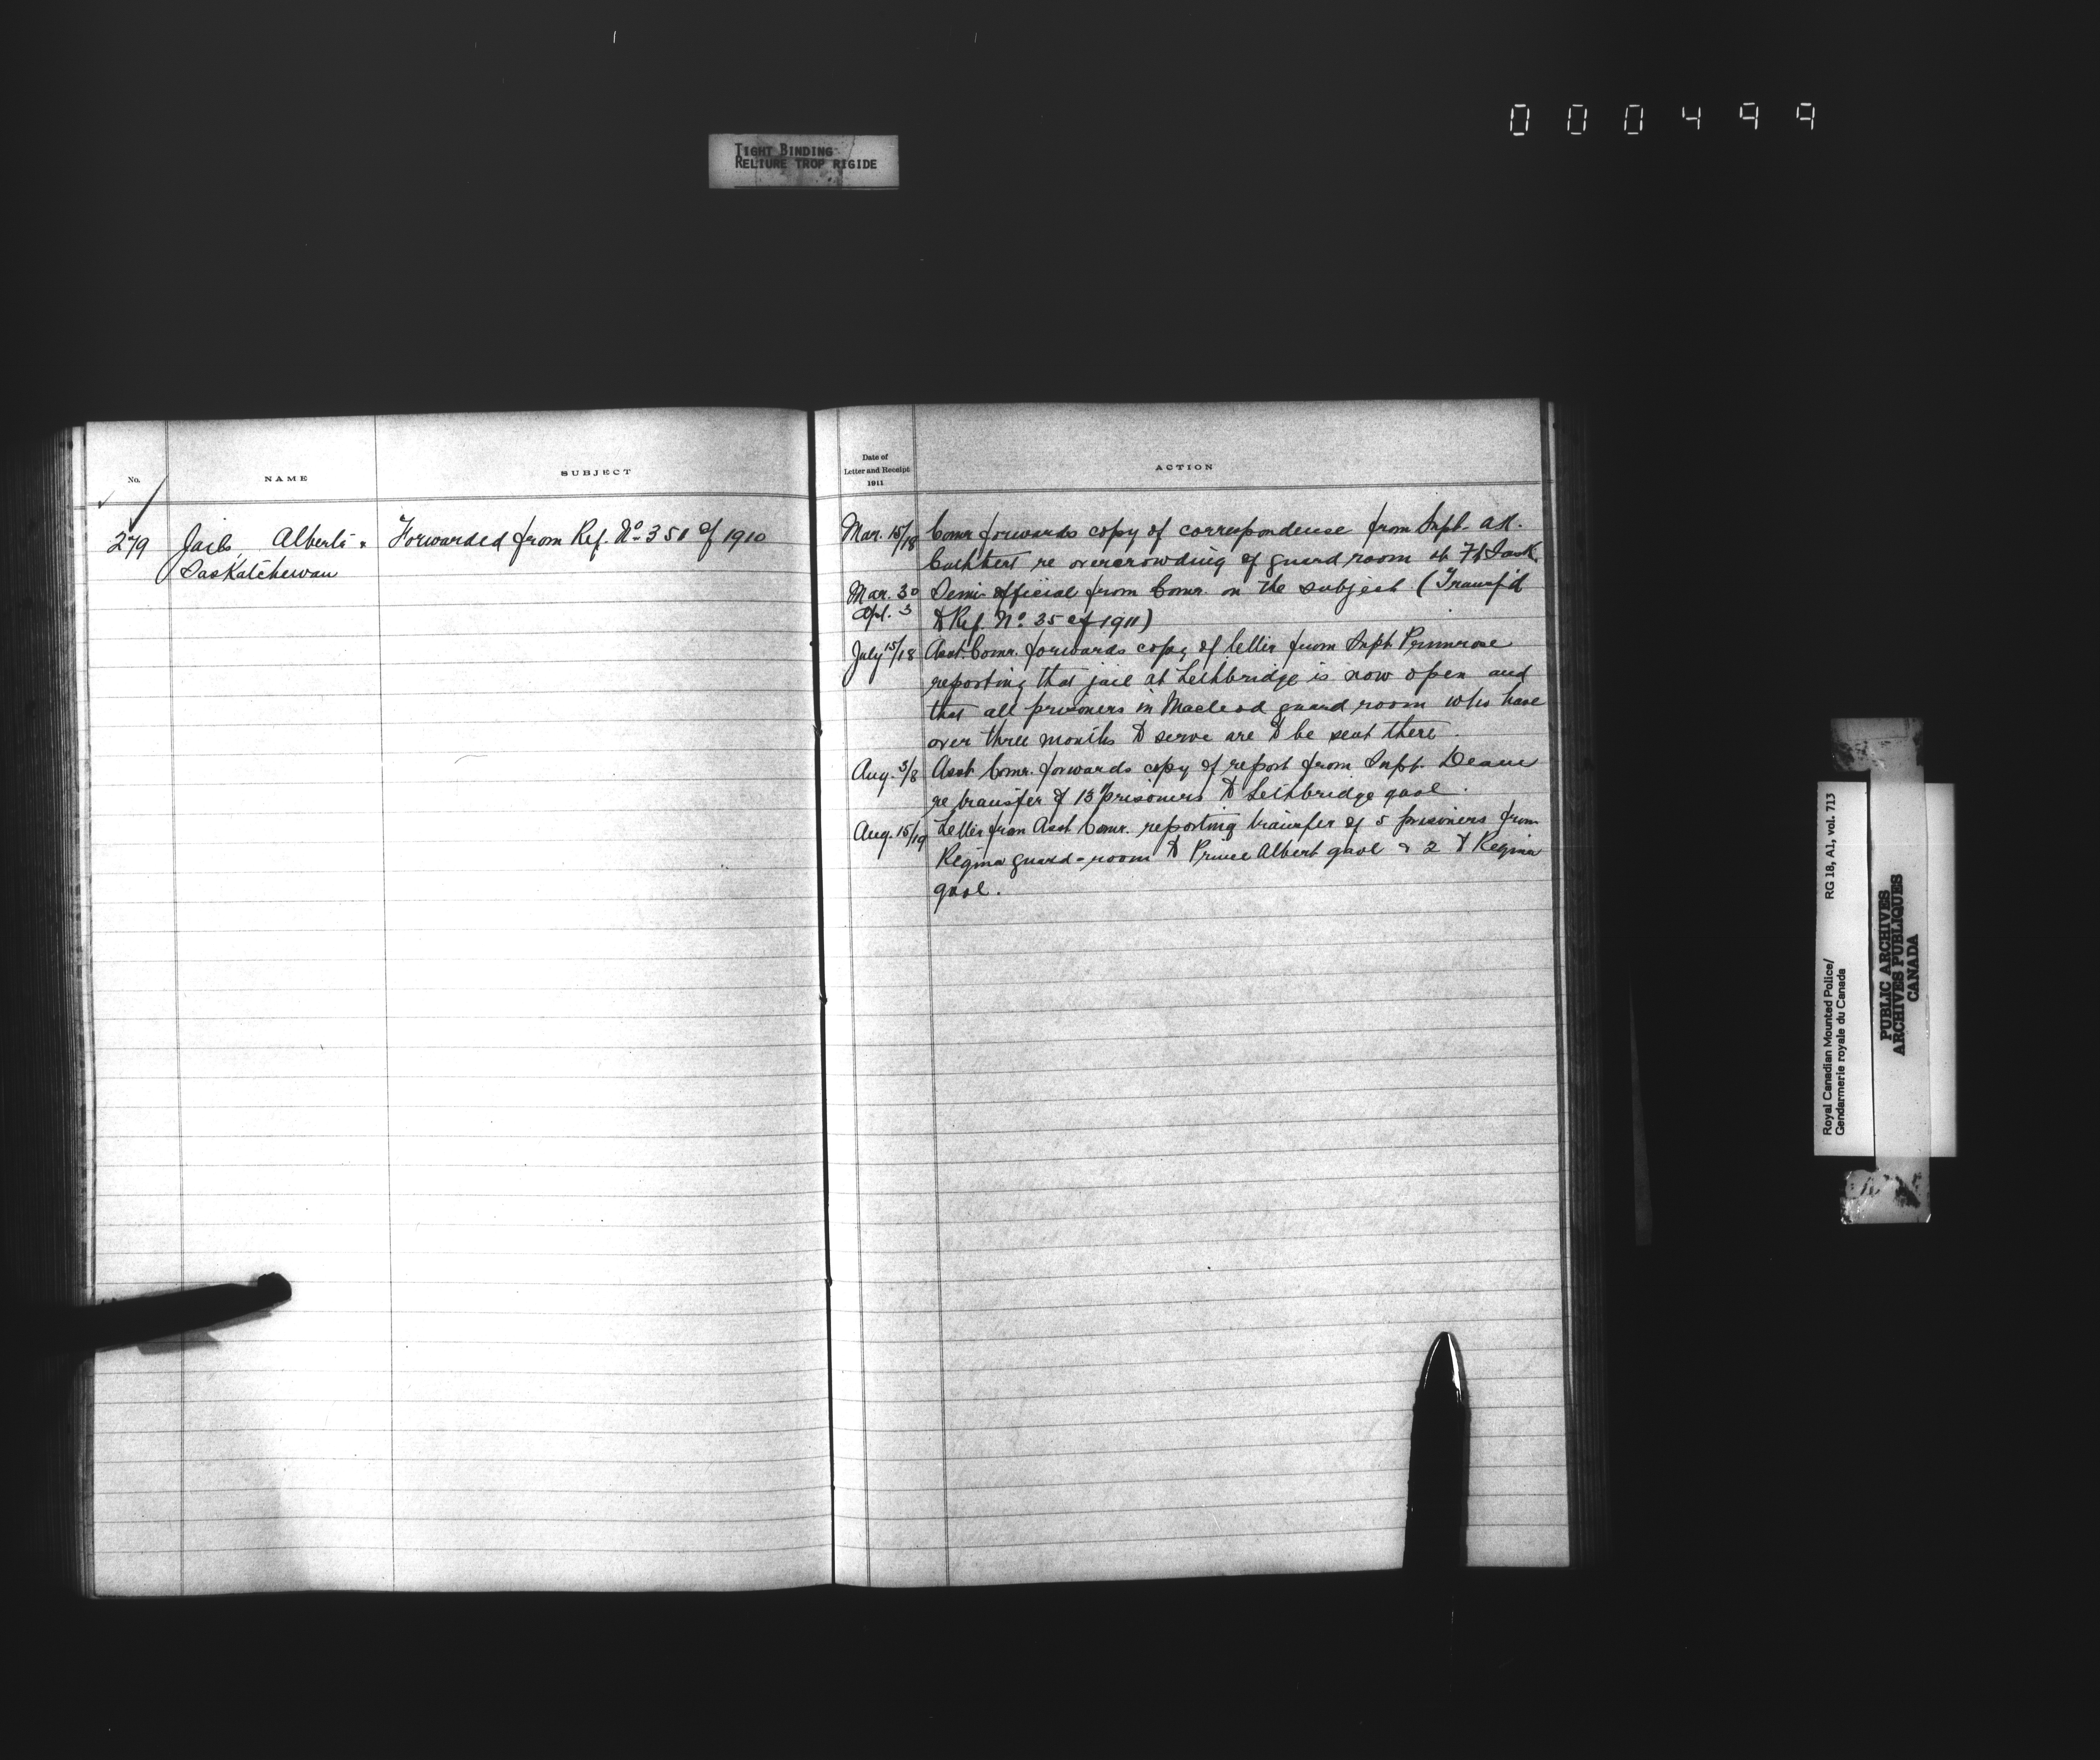 000499
TIGHT BINDING
RELIURE TROP RIGIDE
No.
NAME
SUBJECT
279
Jails, Alberta &
Saskatchewan
Forwarded from Ref. No 351 of 1910
Date of
Letter and Receipt
1911
ACTION
Mar. 15/18 Comr forwards copy of correspondence from Supt. A.R.
Cuthbert re overcrowding of guard room at Ft Sask.
Mar. 30 Semi-official from Comr. on the subject. (Transf'd
Apl. 3 to Ref. No. 35 of 1911)
July 15/18 Asst. Comr. forwards copy of letter from Supt Primrose
reporting that jail at Lethbridge is now open and
that all prisoners in Macleod guard room who have
over three months to serve are to be sent there.
Aug. 3/8 Asst Comr. forwards copy of report from Supt. Deane
re transfer of 13 prisoners to Lethbridge gaol.
Aug. 15/19 Letter from Asst Comr. reporting transfer of 5 prisoners from
Regina guard-room to Prince Albert gaol & 2 to Regina
gaol.
Royal Canadian Mounted Police/
Gendarmerie royale du Canada
RG 18, A1, vol. 713
PUBLIC ARCHIVES
ARCHIVES PUBLIQUES
CANADA